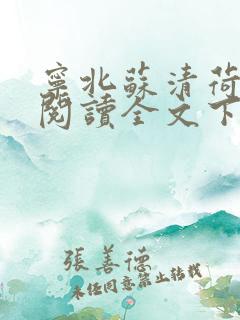 寧北蘇清荷
閱讀全文下
張善德
未经同意禁止转载